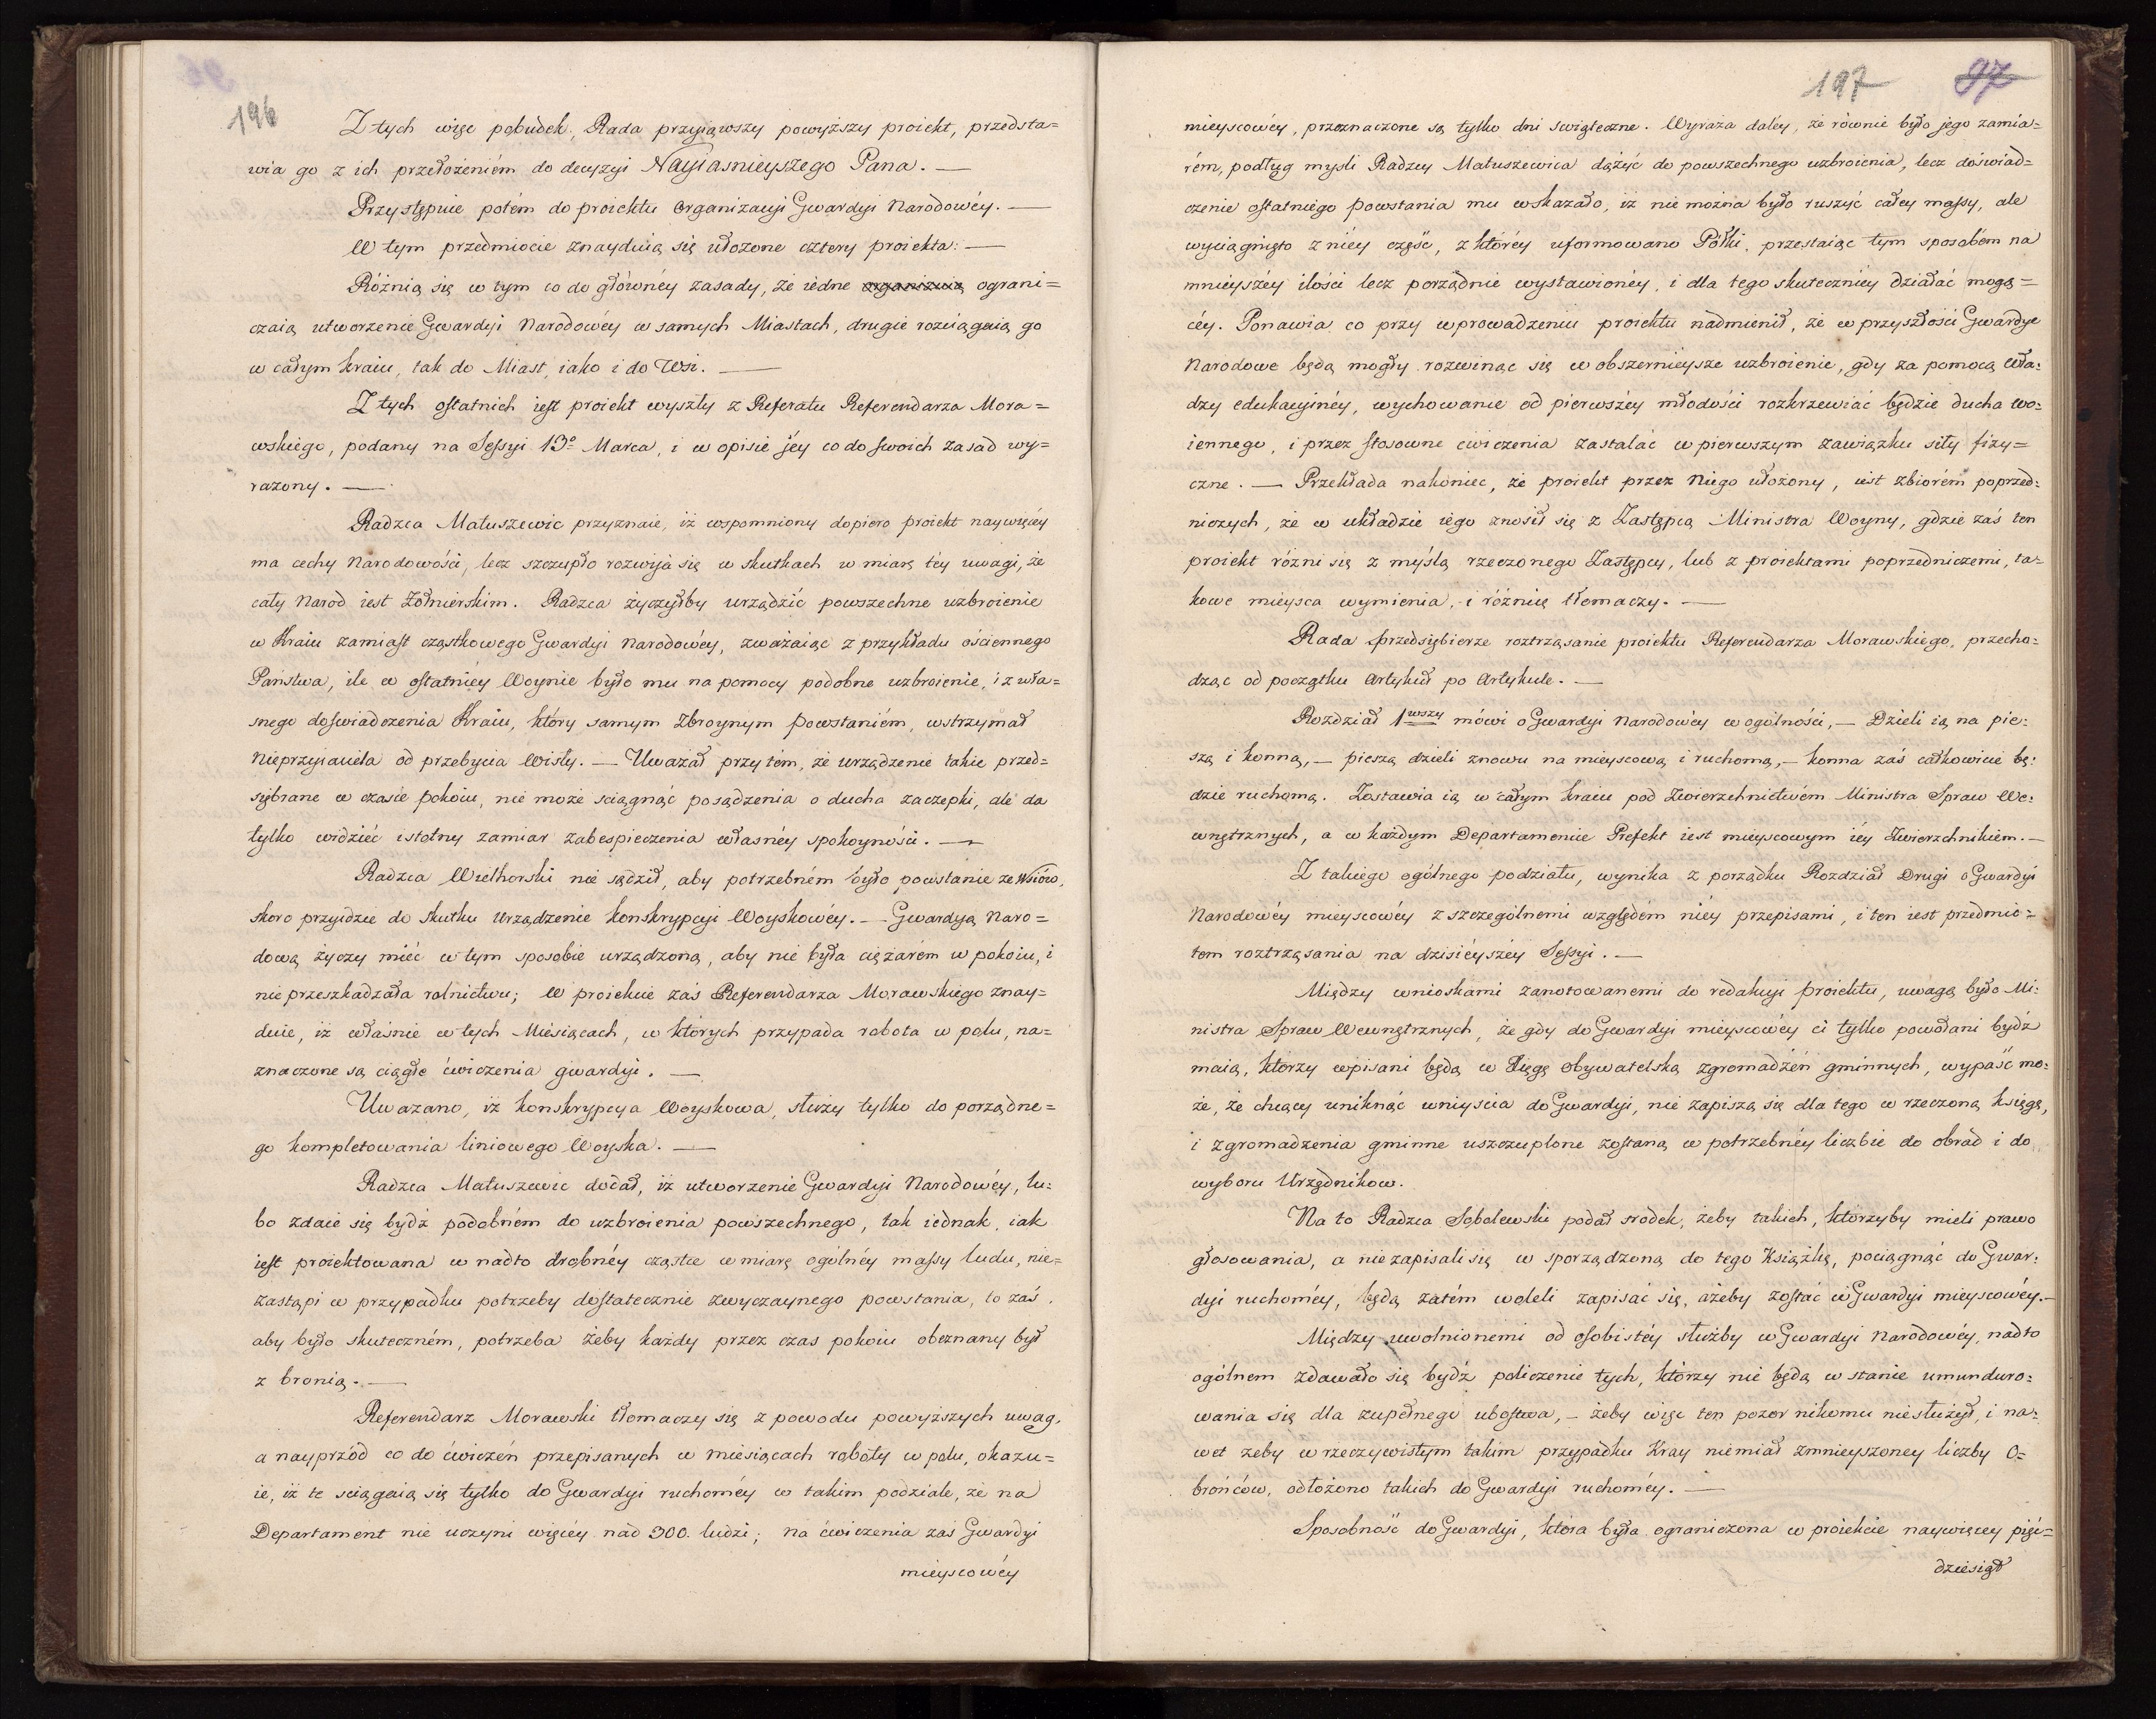 196
Z tych więc pobudek, Rada przyiąwszy powyższy proiekt, przedsta=
wia go z ich przełożeniém do decyzyi Nayiaśnieyszego Pana. —
Przystępuie potém do proiektu Organizacyi Gwardyi Narodowéy. —
W tym przedmiocie znayduią się ułożone cztery proiekta: —
Różnią się w tym co do głównéy zasady, że iedne organizuią ograni=
czaią utworzenie Gwardyi Narodowéy w samych Miastach, drugie rozciągaią go
w całym kraiu, tak do Miast, iako i do Wsi. —
Z tych ostatnich iest proiekt wyszły z Referatu Referendarza Mora=
wskiego, podany na Sessyi 13º Marca, i w opisie jéy co do swoich zasad wy=
rażony. —
Radzca Matuszewic przyznaie, iż wspomniony dopiero proiekt naywięcéy
ma cechy Narodowości, lecz szczupło rozwija się w skutkach w miarę téy uwagi, że
cały Narod iest Żołnierskim. Radzca życzyłby urządzić powszechne uzbroienie
w Kraiu zamiast cząstkowego Gwardyi Narodowéy, zważaiąc z przykładu ościennego
Państwa, ile w ostatniéy Woynie było mu na pomocy podobne uzbroienie, i z wła=
snego doświadczenia Kraiu, który samym zbroynym powstaniém, wstrzymał
Nieprzyiaciela od przebycia Wisły. — Uważał przy tém, że urządzenie takie przed=
sięбrane w czasie pokoiu, nie może sciągnąć posądzenia o ducha zaczepki, ale da
tylko widzieć istotny zamiar zabespieczenia własnéy spokoyności. —
Radzca Wielhorski nie sądził, aby potrzebném było powstanie ze Wsiów,
skoro przyidzie do skutku Urządzenie konskrypcyi Woyskowéy. — Gwardyą Naro=
dową życzy mieć w tym sposobie urządzoną, aby nie była ciężarém w pokoiu, i
nie przeszkadzała rolnictwu; W proiekcie zaś Referendarza Morawskiego znay=
duie, iż właśnie w tych Miesiącach, w których przypada robota w polu, na=
znaczone są ciągłe ćwiczenia gwardyi. —
Uważano, iż konskrypcya Woyskowa, służy tylko do porządne=
go kompletowania liniowego Woyska. —
Radzca Matuszewic dodał, iż utworzenie Gwardyi Narodowéy, lu=
bo zdaie się bydź podobném do uzbroienia powszechnego, tak iednak, iak
iest proiektowana w nadto drobnéy cząstce w miarę ogólnéy massy ludu, nie=
zastąpi w przypadku potrzeby dostatecznie zwyczaynego powstania, to zaś
aby było skuteczném, potrzeba żeby każdy przez czas pokoiu obeznany był
z bronią. —
Referendarz Morawski tłomaczy się z powodu powyższych uwag,
a nayprzód co do ćwiczeń przepisanych w miesiącach roboty w polu, okazu=
ie, iż te sciągaią się tylko do Gwardyi ruchoméy w takim podziale, że na
Departament nie uczyni więcéy nad 300. ludzi; na ćwiczenia zaś Gwardyi
mieyscowéy
197 97
mieyscowéy, przeznaczone są tylko dni swiąteczne. Wyraża daléy, że równie było jego zamia=
rém, podług mysli Radzcy Matuszewica dążyć do powszechnego uzbroienia, lecz doświad=
czenie ostatniego powstania mu wskazało, iż nie można było ruszyć całey massy, ale
wyciągnięto z niéy część, z któréy uformowano Półki, przestaiąc tym sposobém na
mnieyszéy ilości lecz porządnie wystawionéy, i dla tego skuteczniéy działać mogą=
céy. Ponawia co przy wprowadzeniu proiektu nadmienił, że w przyszłości Gwardye
Narodowe będą mogły rozwinąc się w obszernieysze uzbroienie, gdy za pomocą Wła=
dzy edukacyinéy, wychowanie od pierwszéy młodości rozkrzewiać będzie ducha wo=
iennego, i przez stosowne cwiczenia zastalać w pierwszym zawiązku siły fizy=
czne. — Przekłada nakoniec, że proiekt przez Niego ułożony, iest zbiorém poprzed=
niczych, że w układzie iego znosił się z Zastępcą Ministra Woyny, gdzie zaś ten
proiekt różni się z myślą rzeczonego Zastępcy, lub z proiektami poprzedniczemi, ta=
kowe mieysca wymienia, i różnię tłomaczy. —
Rada przedsiębierze roztrząsanie proiektu Referendarza Morawskiego, przecho=
dząc od początku Artykuł po Artykule. —
Rozdział 1wszy mówi o Gwardyi Narodowéy w ogólności, — Dzieli ią na pie=
szą i konną, — pieszą dzieli znowu na mieyscową i ruchomą, — konna zaś całkowicie bę=
dzie ruchomą. Zostawia ią w całym kraiu pod Zwierzchnictwém Ministra Spraw We=
wnętrznych, a w każdym Departamencie Prefekt iest mieyscowym iéy Zwierzchnikiém. —
Z takiego ogólnego podziału, wynika z porządku Rozdział Drugi o Gwardyi
Narodowéy mieyscowéy z szczególnemi względém niéy przepisami, i ten iest przedmio=
tem roztrząsania na dzisiéyszéy Sessyi. —
Między wnioskami zanotowanemi do redakcyi proiektu, uwagą było Mi=
nistra Spraw Wewnętrznych, że gdy do Gwardyi mieyscowéy ci tylko powołani bydź
maią, którzy wpisani będą w Xięgę Obywatelską zgromadzéń gminnych, wypaść mo=
że, że chcący uniknąć wniyścia do Gwardyi, nie zapiszą się dla tego w rzeczoną księgę,
i zgromadzenia gminne uszczuplone zostaną w potrzebnéy liczbie do obrad i do
wyboru Urzędnikow.
Na to Radzca Sobolewski podał srodek, żeby takich, którzyby mieli prawo
głosowania, a nie zapisali się w sporządzoną do tego Książkę, pociągnąć do Gwar=
dyi ruchoméy, będą zatém woleli zapisać się, ażeby zostać w Gwardyi mieyscowéy. —
Między uwolnionemi od osobistéy służby w Gwardyi Narodowéy, nadto
ogólnem zdawało się bydź policzenie tych, którzy nie będą w stanie umunduro=
wania się dla zupełnego ubostwa, — żeby więc ten pozor nikomu nie służył, i na=
wet żeby w rzeczywistym takim przypadku Kray niemiał zmnieyszoney liczby O=
brońców, odłożono takich do Gwardyi ruchoméy. —
Sposobność do Gwardyi, która była ograniczona w proiekcie naywięcey pięć=
dziesiąt